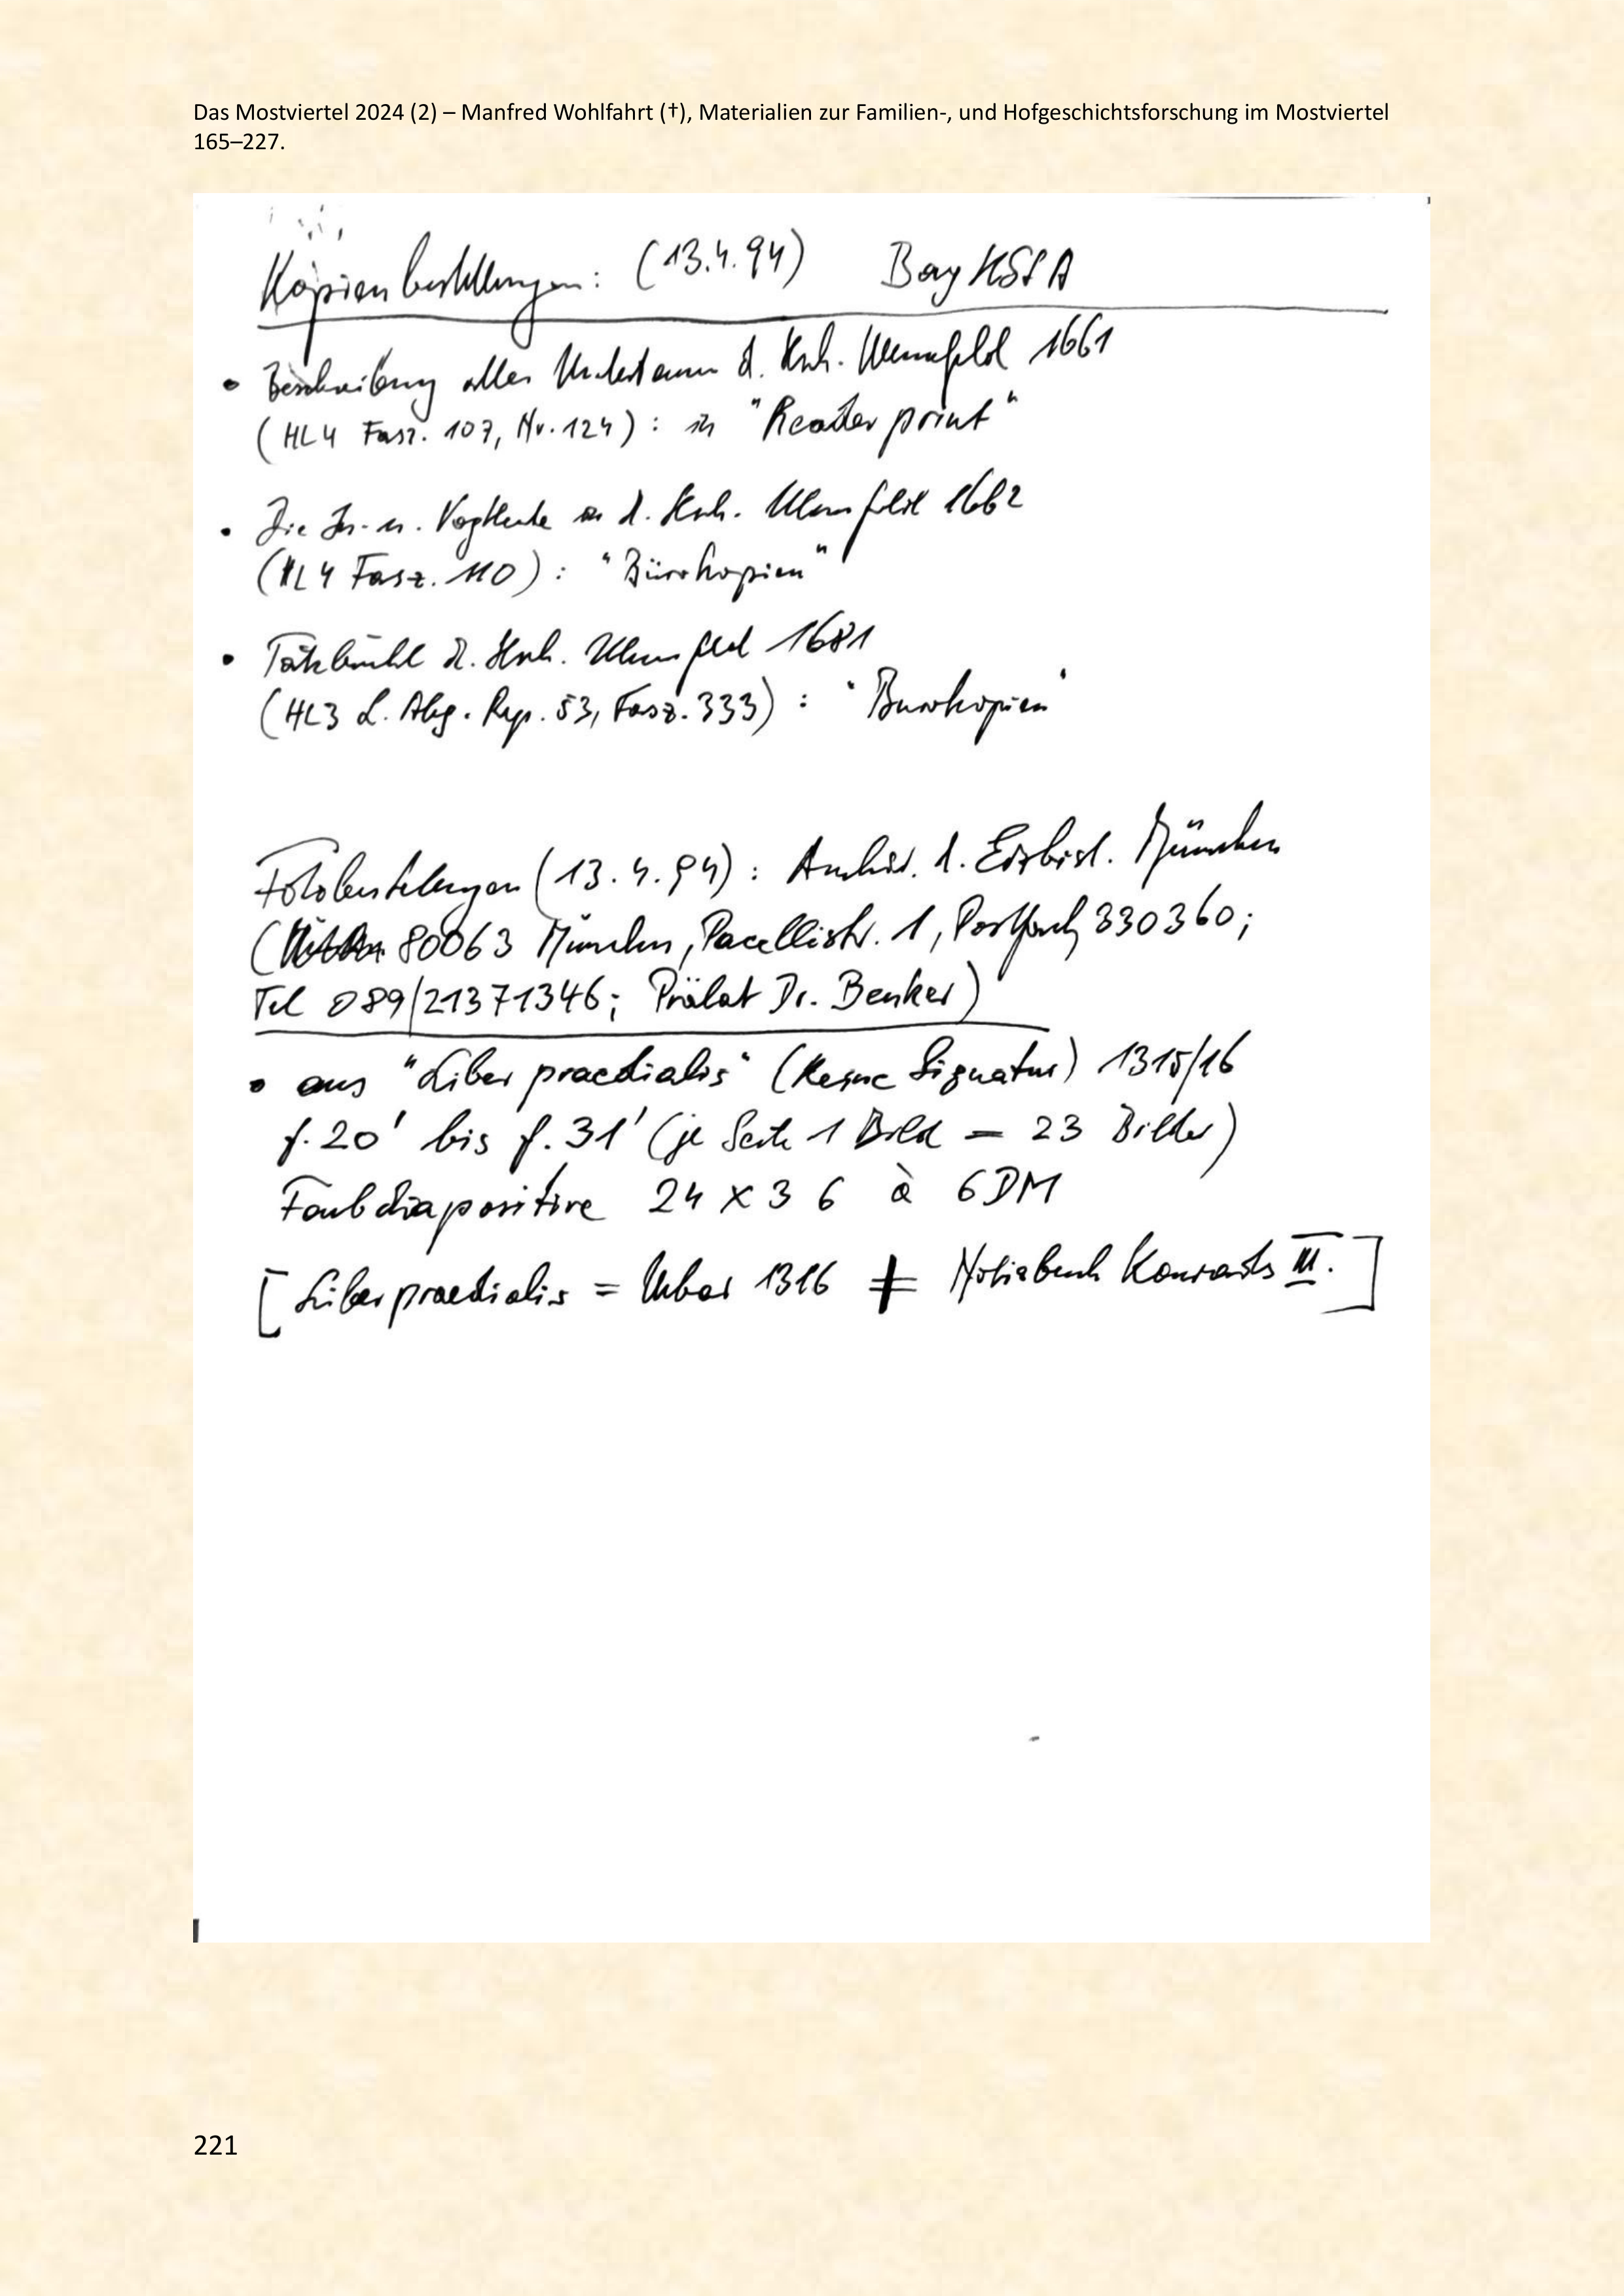 Das Mostviertel 2024 (2) – Manfred Wohlfahrt (†), Materialien zur Familien-, und Hofgeschichtsforschung im Mostviertel
165–227.
Kopienbestellungen: (13.4.94) BayHStA
• Beschreibung aller Untertanen d. Hsch. Ulmerfeld 1661
(HL4 Fasz. 107, Nr. 124): in "Reader print"
• Die In- u. Vogtleute d. Hsch. Ulmerfeld 1662
(HL4 Fasz. 110): "Bürokopien"
• d. Hsch. Ulmerfeld 1681
(HL3 Rep. 53, Fasz. 333): "Bürokopien"
Fotobestellungen (13.4.94): Archiv d. Erzbist. München
(80063 München, Pacellistr. 1, Postfach 330360;
Tel 089/21371346; Prälat Dr. Benker)
• aus "Liber praedialis" (keine Signatur) 1315/16
f. 20' bis f. 31' (je Seite 1 Bild = 23 Bilder)
Farbdiapositive 24 x 36 à 6DM
[Liber praedialis = Urbar 1316 ≠ Notizbuch Konrads III.]
221